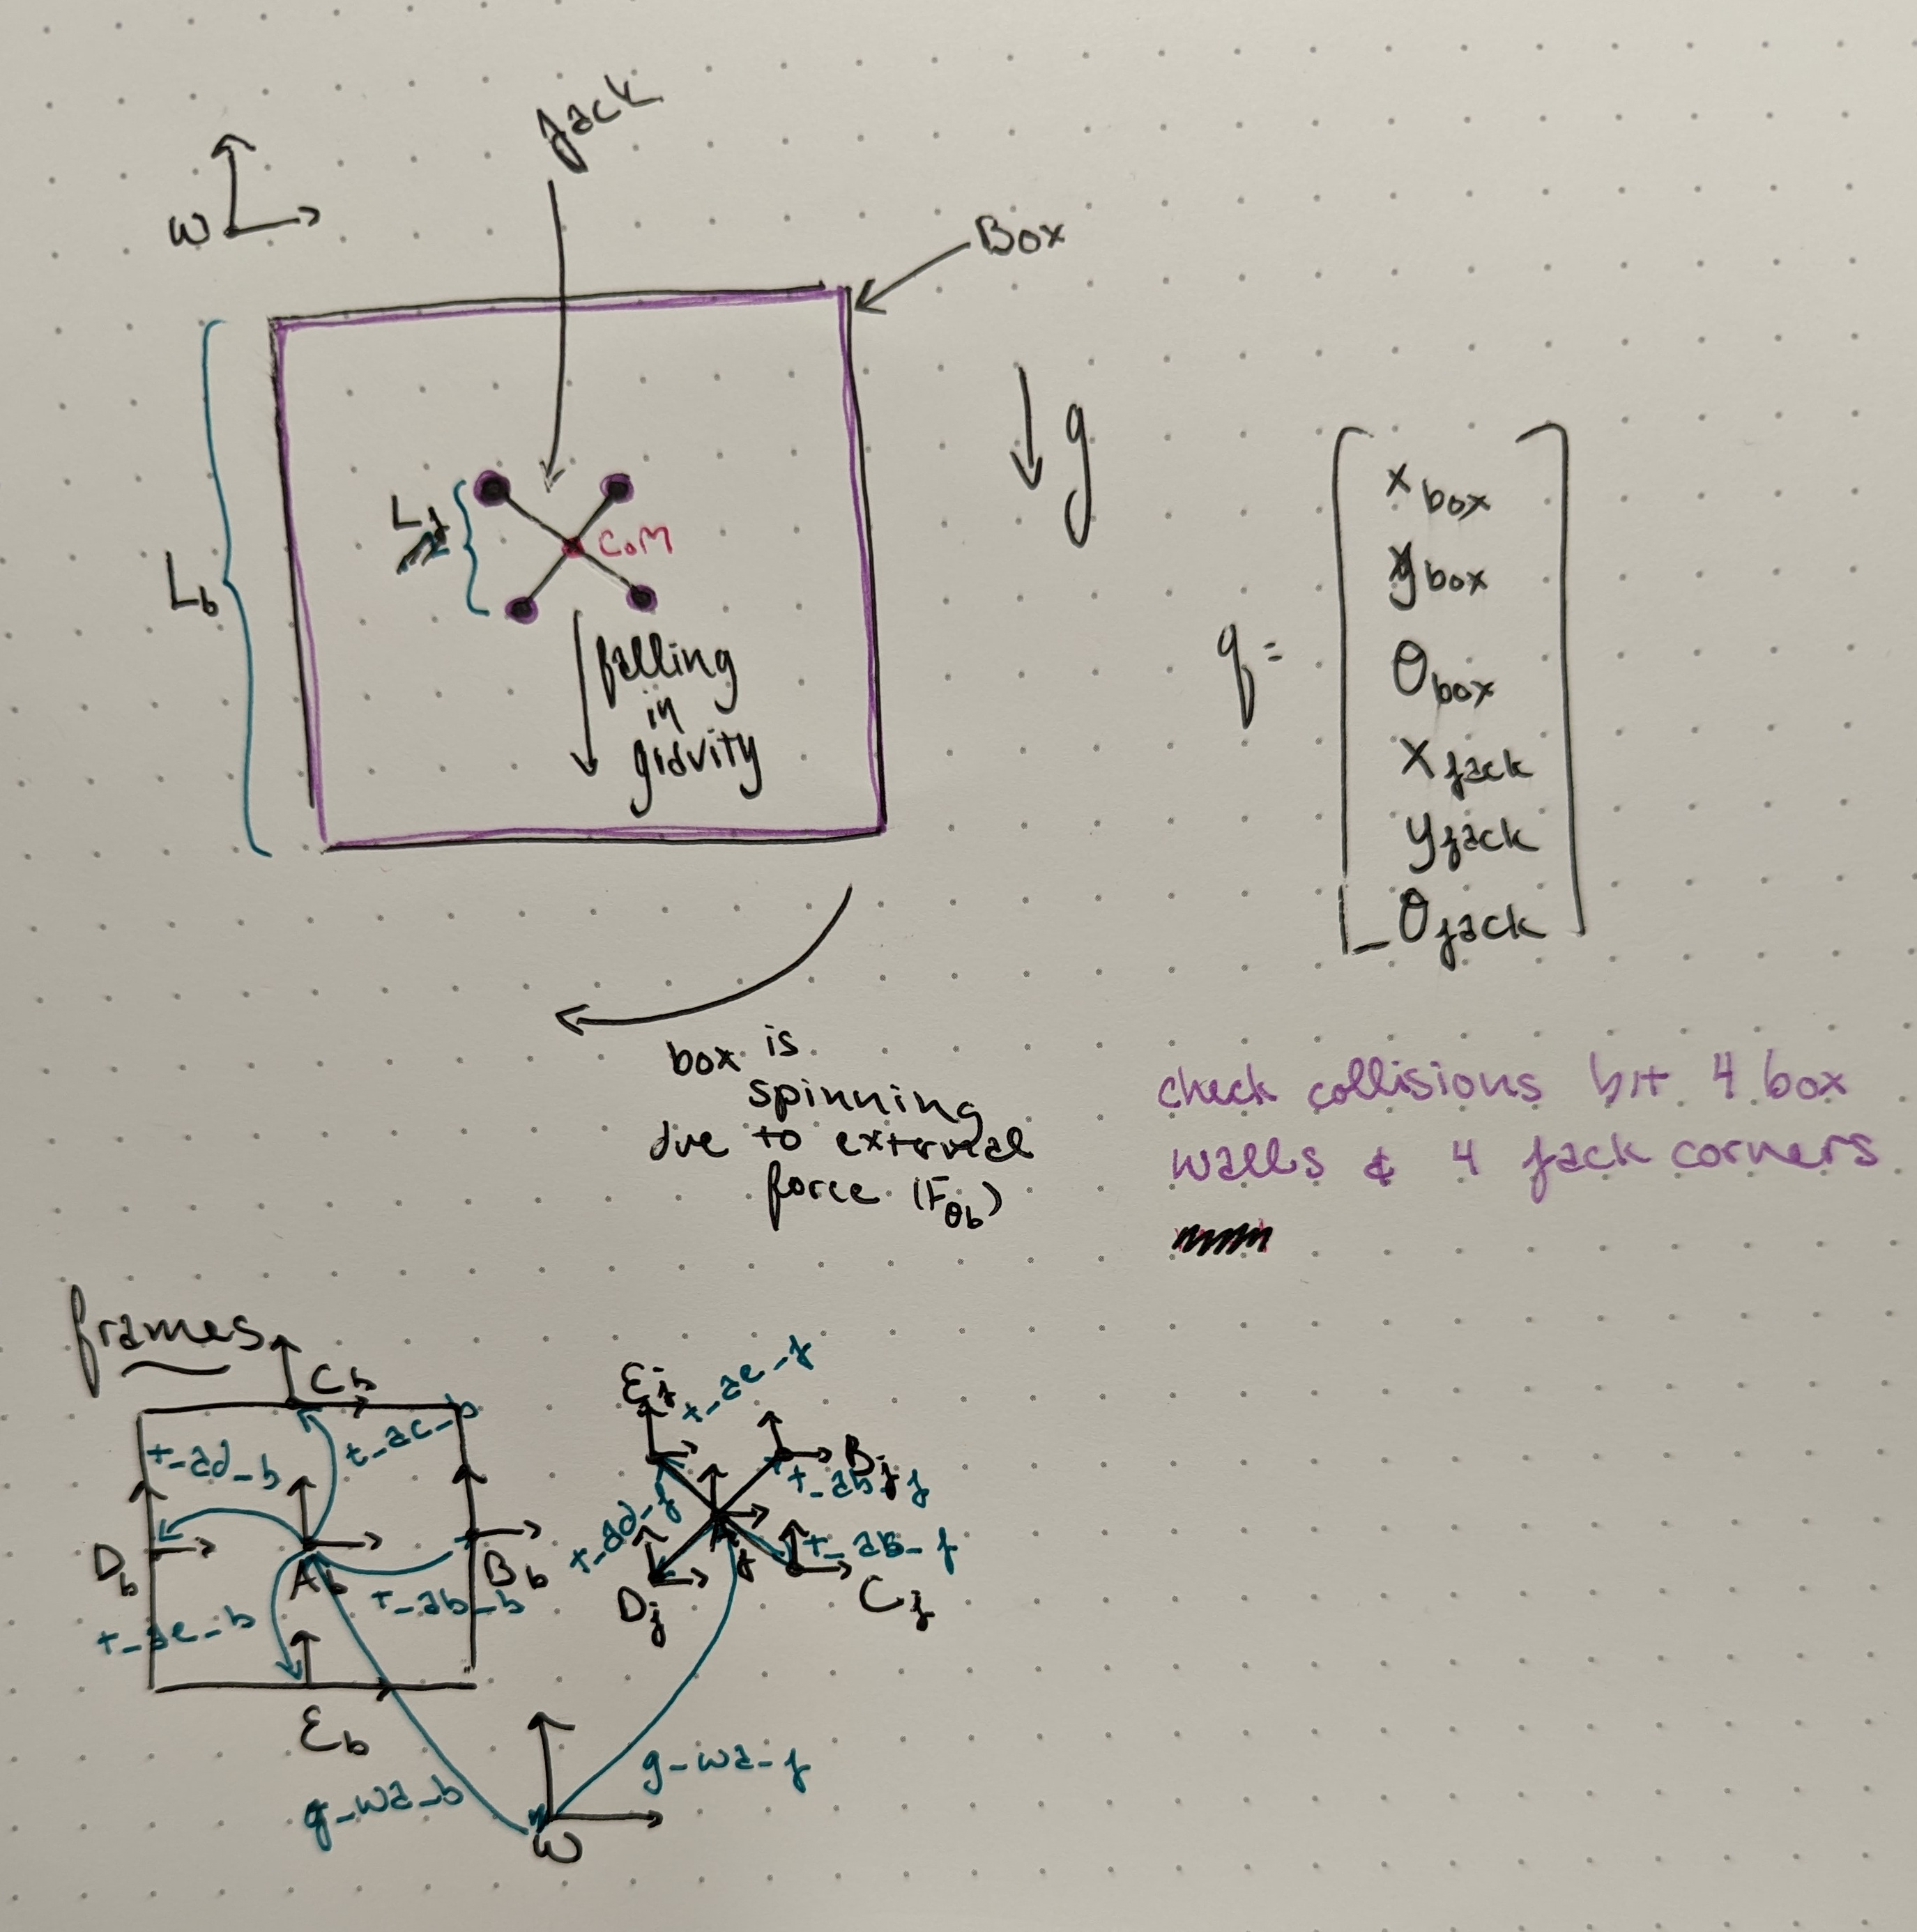 Jack
W
Box
g
L_b
L_j
CoM
falling
in
gravity
q =
x_box
y_box
θ_box
x_jack
y_jack
θ_jack
box is
spinning
due to external
force (F_θb)
check collisions b/t 4 box
walls & 4 jack corners
frames
C_b
t_ac_b
t_ad_b
D_b
A_b
B_b
t_ab_b
t_ae_b
E_b
g_wa_b
E_j
t_ae_j
B_j
t_ab_j
t_ad_j
D_j
C_j
g_wa_j
W